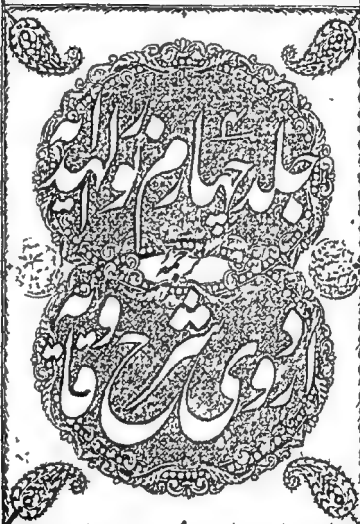 جلد چہارم نور الہدایہ
ترجمہ
اردوی شرح وقایہ